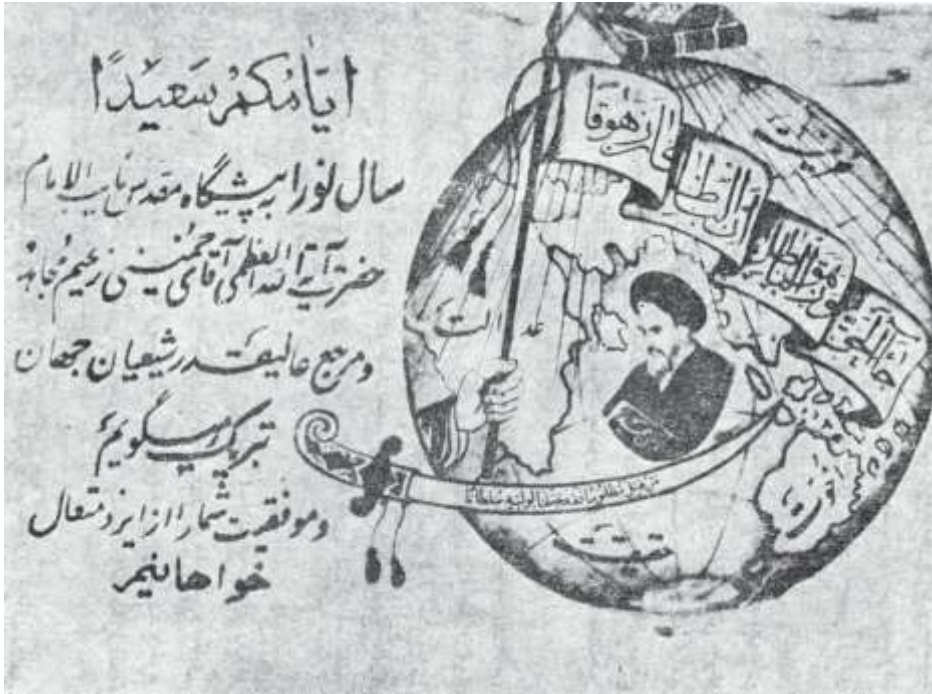 ایّامُکُمْ سَعیدًا
سال نو را به پیشگاه مقدس نایب الامام
حضرت آیة الله العظمی آقای خمینی زعیم مجاهد
و مرجع عالیقدر شیعیان جهان
تبریک میگویم
و موفقیت شما را از ایزد متعال
خواهانیم
جاء الحق
وزهق الباطل
ان الباطل
کان زهوقا
حقیقت